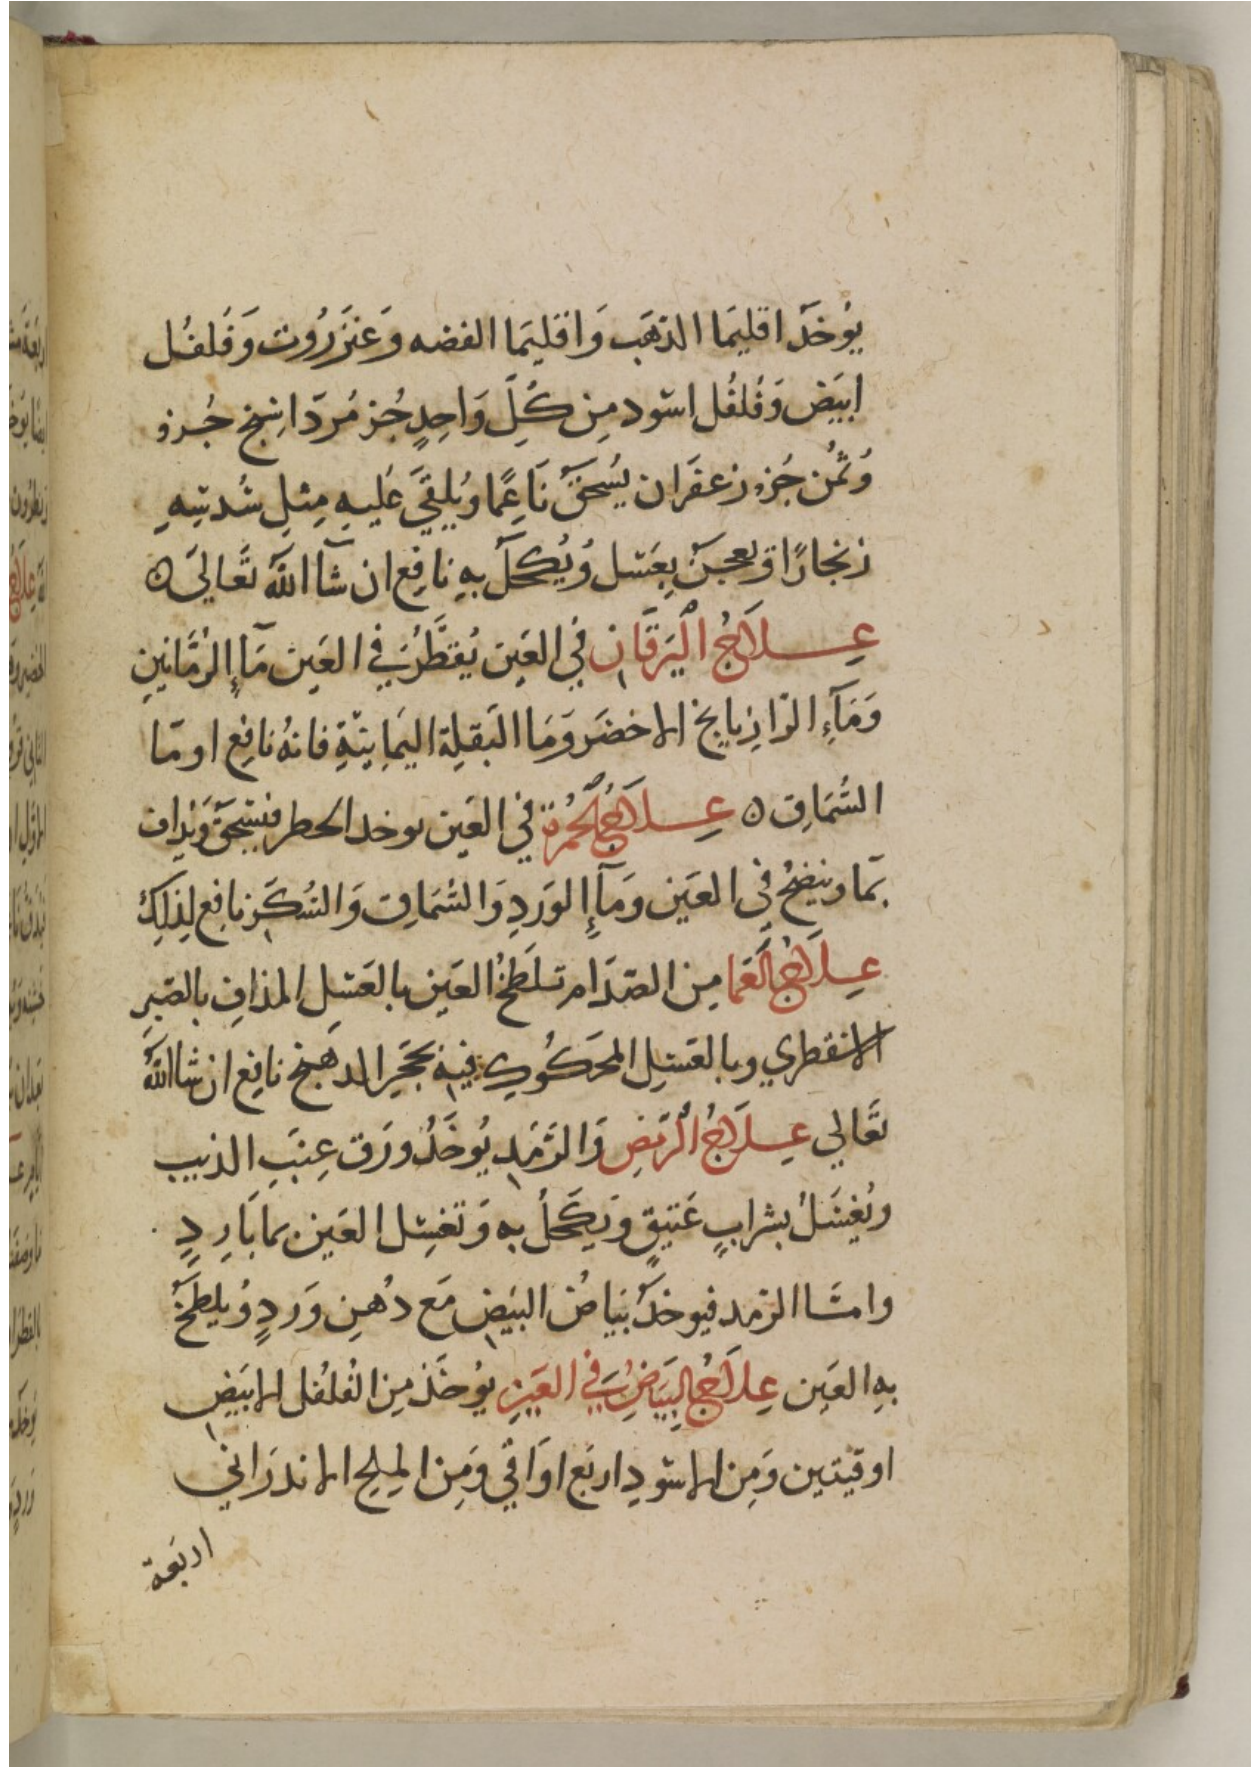 يوُخَذ اقليَما الذهَب وَاقليَما الفضه وَعنزَرُوت وَفُلفُل
ابيَض وَفُلفُل اسود مِن كُلِّ وَاحِدٍ جُز مُردَاسنج جُزؤ
وُثمُن جُزؤ زعفَران يُسحَقَ نَاعمًا ويُلقيَ عَليهِ مِثلِ سُدسِهِ
زنجارًا ويعجنَ بِعَسَل وُيُكحَلَ بهِ نافِع ان شآ اللهَ تعَاليَ ه
عِلاجُ اليَرقَانِ في العَينِ يُقطَّر في العَين مَآءِ الرُمَّانَينِ
وَمَآءِ الرَازيانج الاخضَر وَمَا البَقلِة اليَمانيّةِ فانهُ نافِع او مَا
السُمَاق ه عِلاجُ الحُمرَة في العَين يوخد الحطر فيسحَق وَيُداف
بمَا وينضحُ في العَين وَمَآءِ الوَردِ وَالسُمَاق وَالسُكَّر نافِع لِذلِكَ
عِلاجُ العَمَا مِن الصدَام تلَطخُ العَين بالعَسَل المذاف بالصَبرِ
الاسقطري وبالعَسَلِ المحَكُوكِ فيهِ بحجَرِ الدهنج نافِع ان شا اللهَ
تعَالي عِلاجُ الرَمَصِ وَالرَمَدِ يُوخَذُ ورَق عِنَبِ الذيب
ويُغسَلُ بشرابٍ عَتيقٍ وَيكَحلُ به وَتغسِل العَين بما بَارِدٍ
وامَا الرمد فيوخذَ بيَاضُ البَيضِ مَع دُهنِ وَردٍ وُيلطخَ
بهِ العَين عِلاجُ البيَاضِ في العَينِ يوُخَذ مِن الفُلفُل الابيَضِ
اوقيتين وَمِن الاسودِ اربَع اوَاقي وَمِن المِلحِ الاندرَاني
اربَعَة